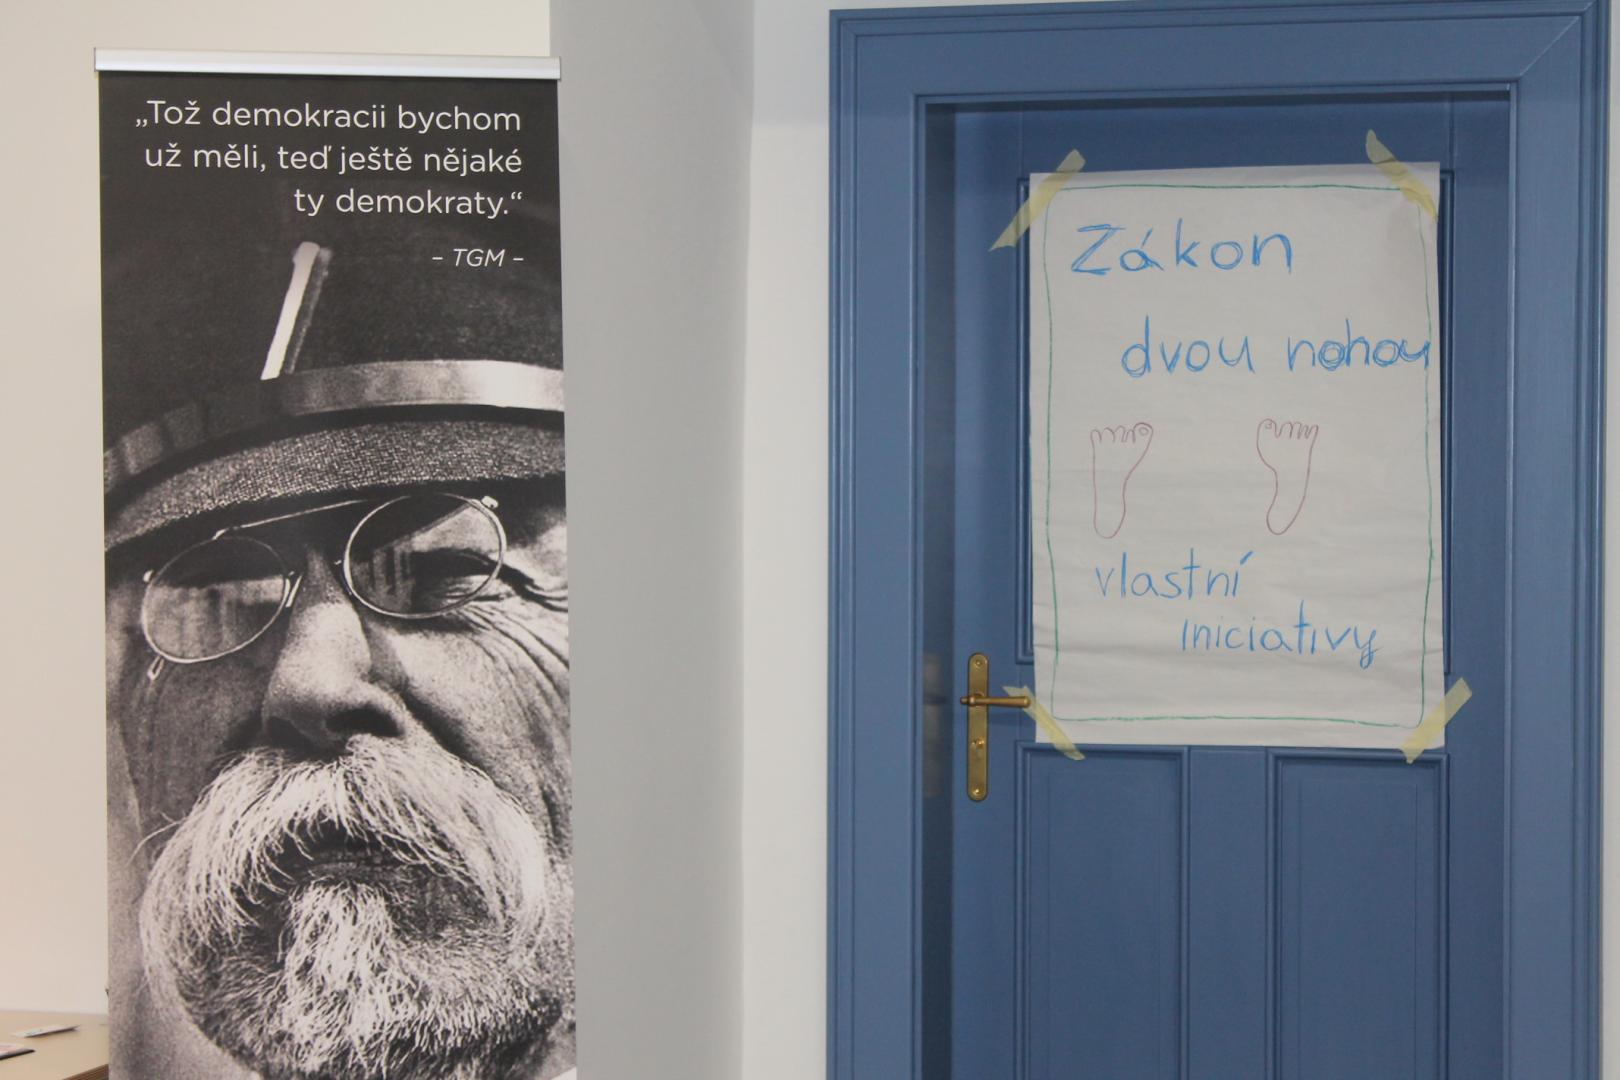 „Tož demokracii bychom
už měli, teď ještě nějaké
ty demokraty.“
– TGM –
Zákon
dvou nohou
vlastní
iniciativy